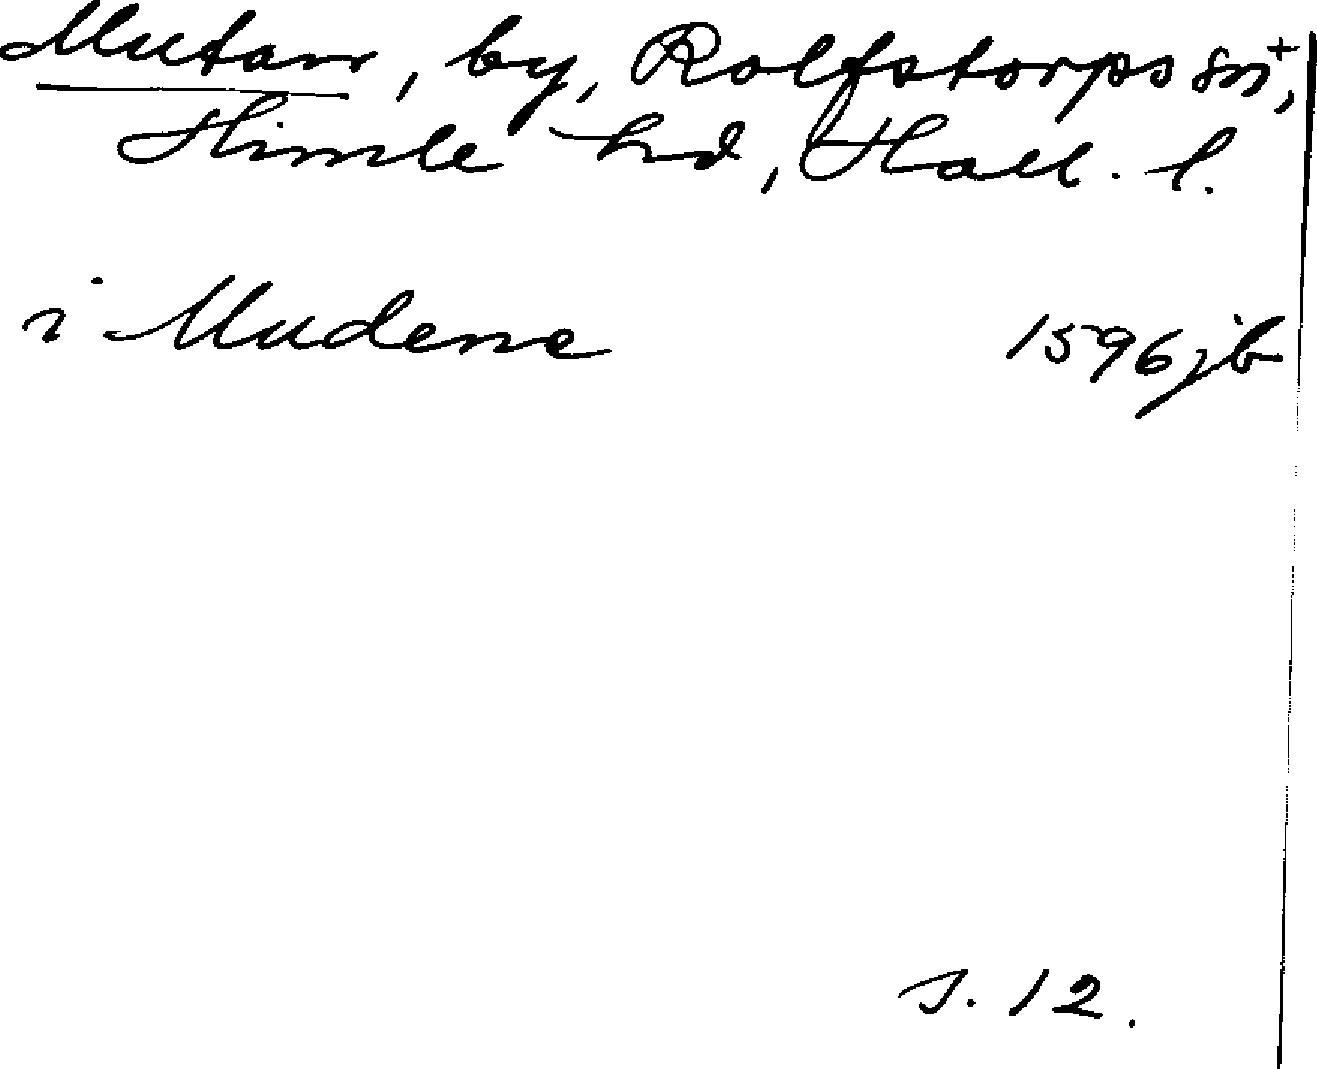 Mutan, by, Rolfstorps sn⁺,
Himle hd, Hall. l.
i Mudene 1596 jb
s. 12.